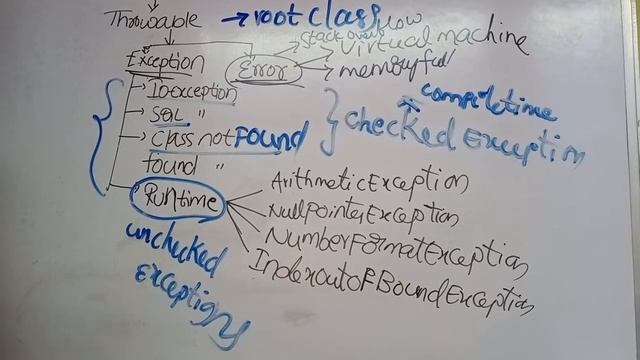 Throwable → root class
Stack overflow
Exception Error virtual machine
memoryfull
IOexception
SQL "
class not Found
found "
compiletime
checked Exception
Runtime
ArithmeticException
NullPointerException
NumberFormatException
IndexoutofBoundException
unchecked
exceptions